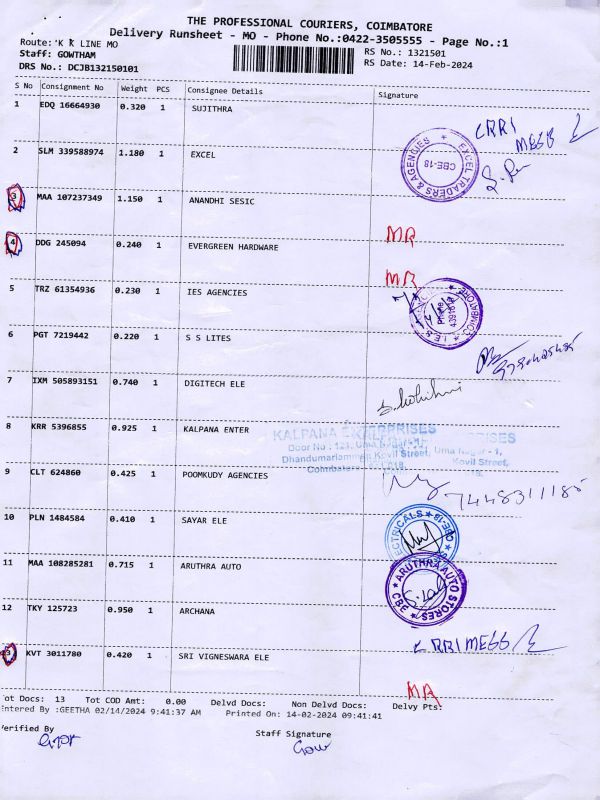 THE PROFESSIONAL COURIERS, COIMBATORE
Delivery Runsheet - MO - Phone No.:0422-3505555 - Page No.:1
Route: K K LINE MO
RS No.: 1321501
Staff: GOWTHAM
RS Date: 14-Feb-2024
DRS No.: DCJB132150101
S No Consignment No Weight PCS Consignee Details Signature
1 EDQ 16664930 0.320 1 SUJITHRA
2 SLM 339588974 1.180 1 EXCEL
EXCEL TRADERS & AGENCIES CBE-18
3 MAA 107237349 1.150 1 ANANDHI SESIC
MR
4 DDG 245094 0.240 1 EVERGREEN HARDWARE
MR
5 TRZ 61354936 0.230 1 IES AGENCIES
6 PGT 7219442 0.220 1 S S LITES
7 IXM 505893151 0.740 1 DIGITECH ELE
8 KRR 5396855 0.925 1 KALPANA ENTER
KALPANA ENTERPRISES
9 CLT 624860 0.425 1 POOMKUDY AGENCIES
7448311185
10 PLN 1484584 0.410 1 SAYAR ELE
11 MAA 108285281 0.715 1 ARUTHRA AUTO
ARUTHRA AUTO STORES CBE
12 TKY 125723 0.950 1 ARCHANA
13 KVT 3011780 0.420 1 SRI VIGNESWARA ELE
MR
ot Docs: 13 Tot COD Amt: 0.00 Delvd Docs: Non Delvd Docs: Delvy Pts:
ntered By :GEETHA 02/14/2024 9:41:37 AM Printed On: 14-02-2024 09:41:41
erified By
Staff Signature
Gow